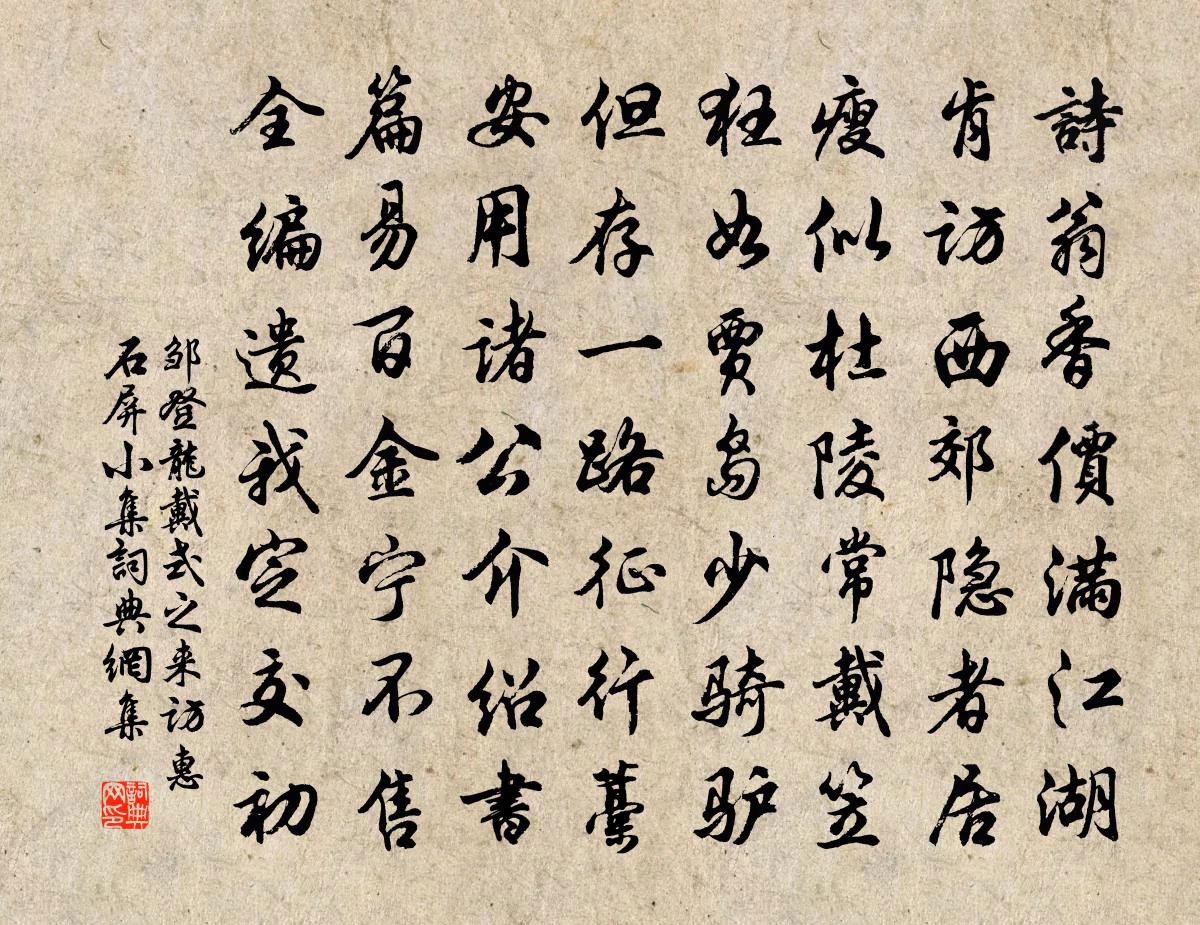 詩翁香價滿江湖
肯访西郊隐者居
瘦似杜陵常戴笠
狂如贾岛少骑驴
但存一路征行藁
安用诸公介绍書
篇易百金宁不售
全编遗我定交初
邹登龍戴式之来访惠
石屏小集詞典網集
詞典
网印